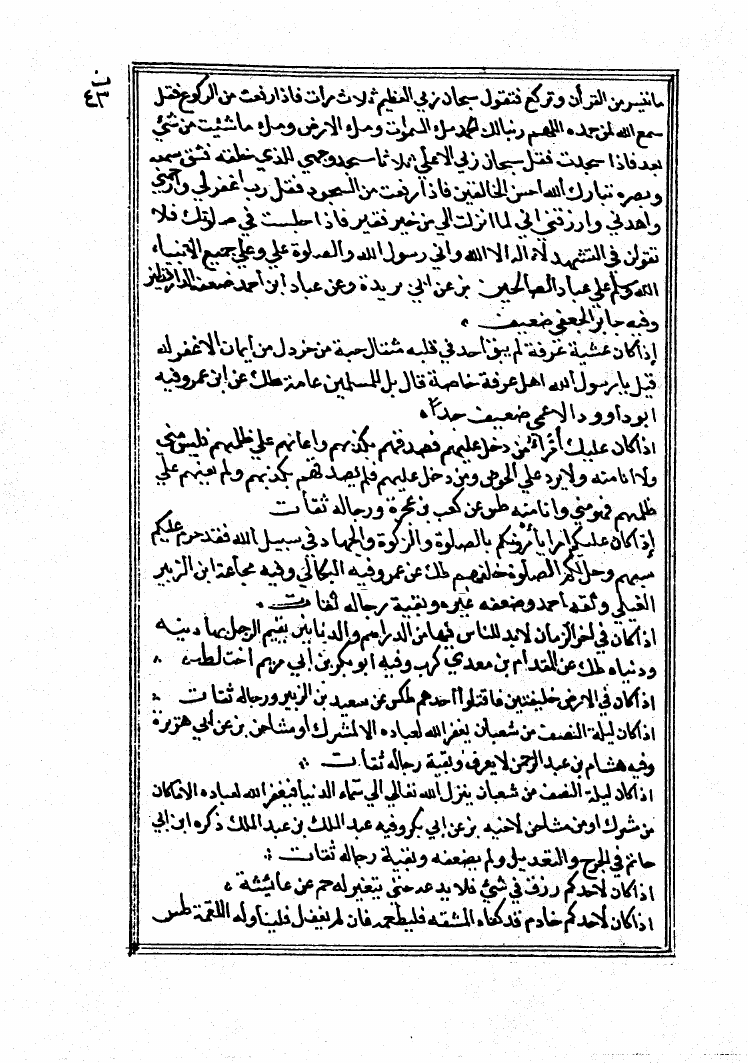 ن
٤٣
ما تيسر من القرآن وتركع فتقول سبحان ربي العظيم ثلاث مرات فاذا رفعت من الركوع فقل
سمع الله لمن حمده اللهم ربنا لك الحمد ملء السموات وملء الارض وملء ما شئت من شئ
بعد فاذا سجدت فقل سبحان ربي الاعلى ثلاثا سجد وجهي للذي خلقه فشق سمعه
وبصره تبارك الله احسن الخالقين فاذا رفعت من السجود فقل رب اغفر لي وارحمني
واهدني وارزقني اني لما انزلت الي من خير فقير فاذا جلست في صلوتك فلا
تقولن في التشهد لا اله الا الله واني رسول الله والصلوة علي وعلى جميع الانبياء
الله وسلم على عباد الصالحين بز عن ابي بريدة وعن عباد ابن أحمد ضعفه الدارقطني
وفيه جابر الجعفي ضعيف
إذا كان عشية عرفة لم يبق أحد في قلبه مثقال حبة من خردل من ايمان الا غفر له
قيل يا رسول الله اهل عرفة خاصة قال بل للمسلمين عامة طك عن ابن عمر وفيه
ابو داوود الاعمى ضعيف جداً
اذا كان عليك أمراء من دخل عليهم فصدقهم بكذبهم واعانهم على ظلمهم فليس مني
ولا انا منه ولا يرد علي الحوض ومن دخل عليهم فلم يصدقهم بكذبهم ولم يعنهم على
ظلمهم فهو مني وانا منه طس عن كعب بن عجرة ورجاله ثقات
إذا كان عليكم امراء يأمرونكم بالصلوة والزكوة والجهاد في سبيل الله فقد حرم عليكم
سبهم وحل لكم الصلوة خلفهم طك عن عمرو فيه البكالي وفيه مجاعة ابن الزبير
العتكي وثقه احمد وضعفه غيره وبقية رجاله ثقات
اذا كان في اخر الزمان لا بد للناس فيها من الدراهم والدنانير يقيم الرجل بها دينه
ودنياه طك عن المقدام بن معدي كرب وفيه ابو بكر بن ابي مريم اختلط
اذا كان في الارض خليفتين فاقتلوا أحدهم طكس عن سعيد بن الزبير ورجاله ثقات
اذا كان ليلة النصف من شعبان يغفر الله لعباده الا لمشرك او مشاحن بز عن ابي هريرة
وفيه هشام بن عبد الرحمن لا يعرف وبقية رجاله ثقات
اذا كان ليلة النصف من شعبان ينزل الله تعالى الى سماء الدنيا فيغفر الله لعباده الا ما كان
من شرك او من مشاحن لاخيه بز عن ابي بكر وفيه عبد الملك بن عبد الملك ذكره ابن ابي
حاتم في الجرح والتعديل ولم يضعفه وبقية رجاله ثقات
اذا كان لاحدكم رزق في شئ فلا يدعه حتى يتغير له حم عن عايشة
اذا كان لاحدكم خادم قد كفاه المشقه فليطعمه فان لم يفعل فليناوله اللقمة طس